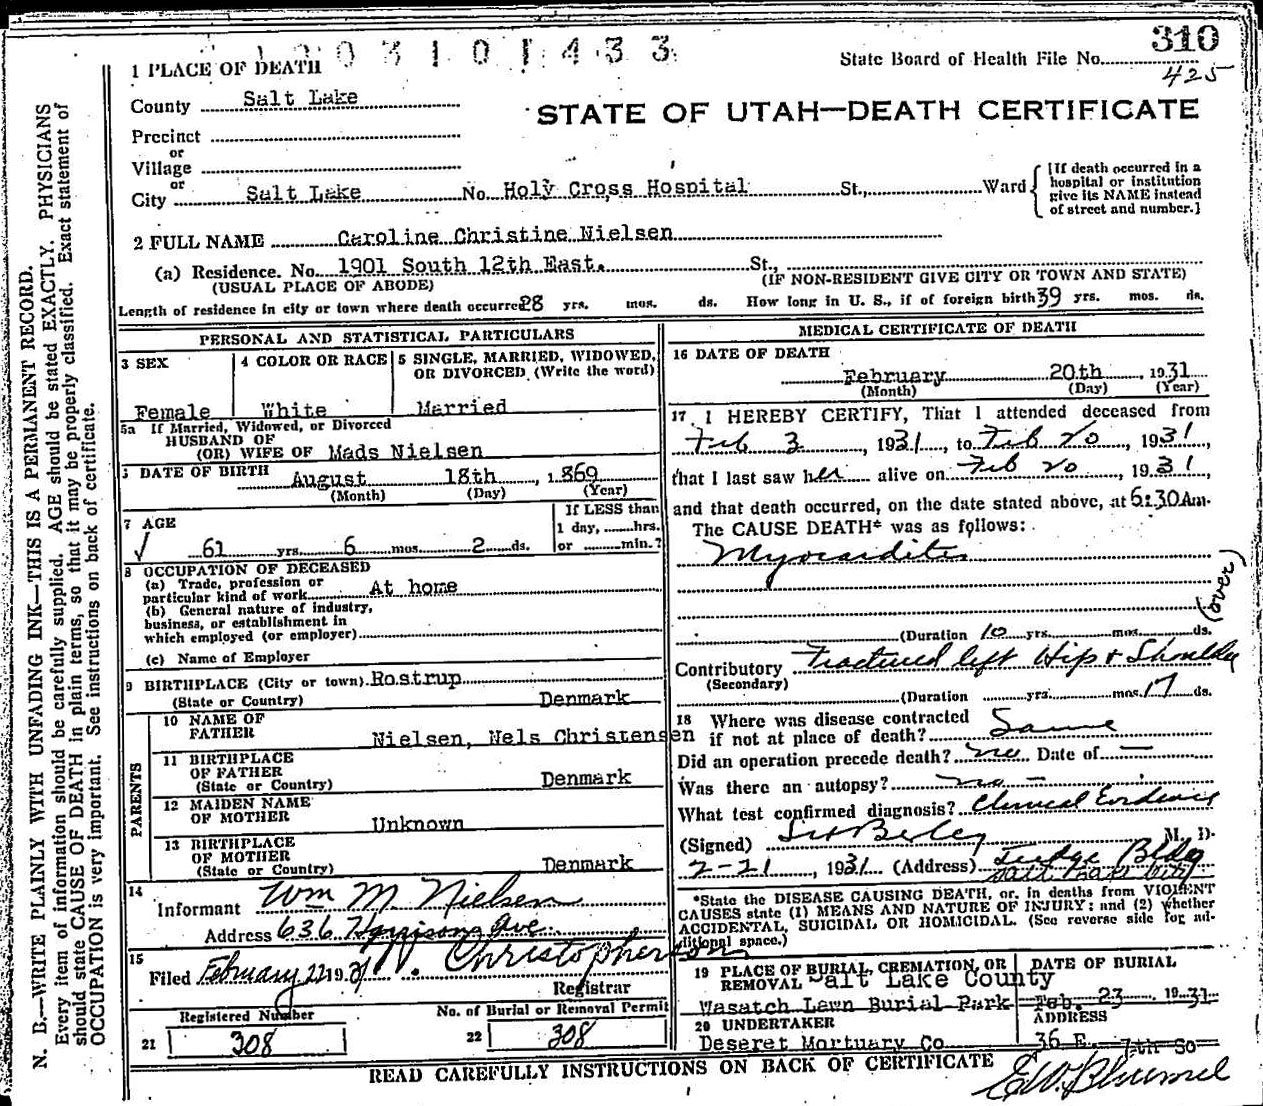 310
State Board of Health File No.
425
1 PLACE OF DEATH
County Salt Lake
STATE OF UTAH—DEATH CERTIFICATE
Precinct
or
Village
or
City Salt Lake No. Holy Cross Hospital St., Ward
[If death occurred in a hospital or institution give its NAME instead of street and number.]
2 FULL NAME Caroline Christine Nielsen
(a) Residence. No. 1901 South 12th East. St.,
(USUAL PLACE OF ABODE) (IF NON-RESIDENT GIVE CITY OR TOWN AND STATE)
Length of residence in city or town where death occurred 28 yrs. mos. ds. How long in U. S., if of foreign birth 39 yrs. mos. ds.
PERSONAL AND STATISTICAL PARTICULARS
3 SEX
Female
4 COLOR OR RACE
White
5 SINGLE, MARRIED, WIDOWED,
OR DIVORCED (Write the word)
Married
5a If Married, Widowed, or Divorced
HUSBAND OF
(OR) WIFE OF Mads Nielsen
DATE OF BIRTH August 18th, 1869
(Month) (Day) (Year)
7 AGE
61 yrs. 6 mos. 2 ds.
If LESS than
1 day, hrs.
or min.?
8 OCCUPATION OF DECEASED
(a) Trade, profession or
particular kind of work At home
(b) General nature of industry,
business, or establishment in
which employed (or employer)
(c) Name of Employer
9 BIRTHPLACE (City or town) Rostrup
(State or Country) Denmark
PARENTS
10 NAME OF
FATHER Nielsen, Nels Christensen
11 BIRTHPLACE
OF FATHER
(State or Country) Denmark
12 MAIDEN NAME
OF MOTHER Unknown
13 BIRTHPLACE
OF MOTHER
(State or Country) Denmark
14
Informant Wm M. Nielsen
Address 636 Harrison Ave.
15
Filed February 22 1931 Christopherson
Registrar
Registered Number
21 308
No. of Burial or Removal Permit
22 308
MEDICAL CERTIFICATE OF DEATH
16 DATE OF DEATH
February 20th, 1931
(Month) (Day) (Year)
17 I HEREBY CERTIFY, That I attended deceased from
Feb 3, 1931, to Feb 20, 1931,
that I last saw her alive on Feb 20, 1931,
and that death occurred, on the date stated above, at 6:30 Am.
The CAUSE DEATH* was as follows:
Myocarditis
(over)
(Duration 10 yrs. mos. ds.
Contributory Fractured left Hip & Shoulder
(Secondary)
(Duration yrs. mos. 17 ds.
18 Where was disease contracted
if not at place of death? Same
Did an operation precede death? no Date of —
Was there an autopsy? no —
What test confirmed diagnosis? Clinical Evidence
(Signed) M. D.
2-21, 1931 (Address) Judge Bldg
Salt Lake City
*State the DISEASE CAUSING DEATH, or, in deaths from VIOLENT
CAUSES state (1) MEANS AND NATURE OF INJURY; and (2) whether
ACCIDENTAL, SUICIDAL OR HOMICIDAL. (See reverse side for ad-
ditional space.)
19 PLACE OF BURIAL, CREMATION, OR
REMOVAL Salt Lake County
Wasatch Lawn Burial Park
DATE OF BURIAL
Feb. 23, 1931
20 UNDERTAKER
Deseret Mortuary Co
ADDRESS
36 E. 7th So
READ CAREFULLY INSTRUCTIONS ON BACK OF CERTIFICATE
N. B.—WRITE PLAINLY WITH UNFADING INK—THIS IS A PERMANENT RECORD.
Every item of information should be carefully supplied. AGE should be stated EXACTLY. PHYSICIANS
should state CAUSE OF DEATH in plain terms, so that it may be properly classified. Exact statement of
OCCUPATION is very important. See instructions on back of certificate.